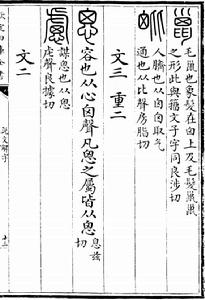 巤
毛巤也象髮在囟上及毛髮巤巤
之形此與籀文子字同良涉切
𣬉
人臍也从囟囟取气
通也从比聲房脂切
文三 重二
思
容也从心囟聲凡思之屬皆从思
息兹
切
慮
謀思也从思
虍聲良據切
文二
説文解字